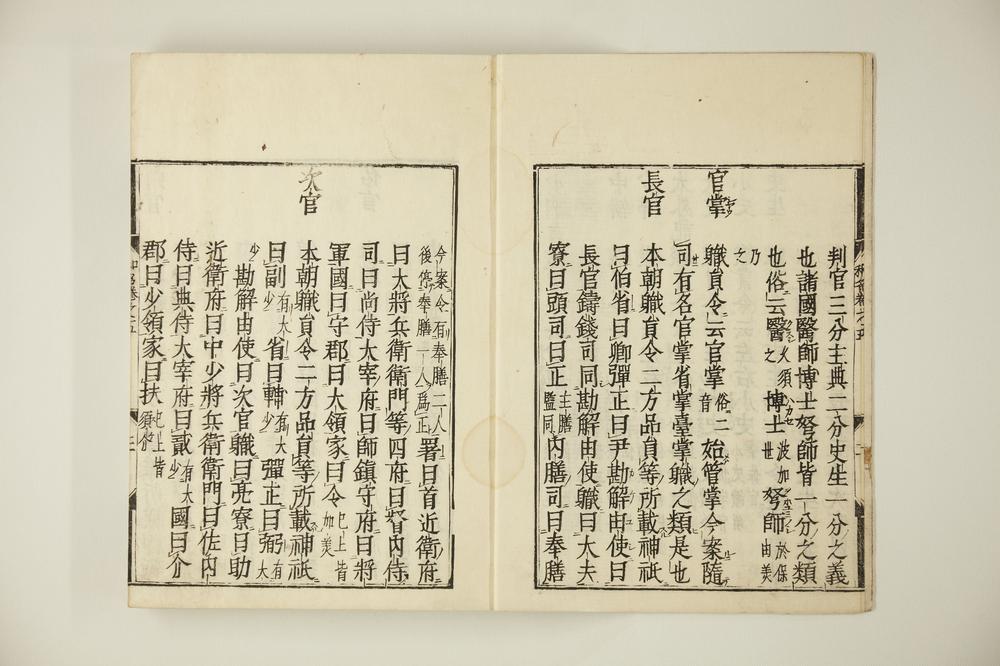 判官三分主典二分史生一分之義
也諸國醫師博士弩師皆一分之類
也俗云醫久須之博士波加世弩師於保由美乃之
官掌
職員令云官掌俗二音始管掌今案隨
司有名官掌省掌臺掌職之類是也
長官
本朝職員令二方品員等所載神祇
曰伯省曰卿彈正曰尹勘解由使曰
長官鑄錢司同勘解由使職曰大夫
寮曰頭司曰正主膳監同內膳司曰奉膳
今案令有奉膳二人後停奉膳一人爲正署曰首近衛府
曰大將兵衛衛門等四府曰督內侍
司曰尚侍大宰府曰師鎮守府曰將
軍國曰守郡曰大領家曰令已上皆加美
次官
本朝職員令二方品員等所載神祇
曰副有大少省曰輔有大少彈正曰弼有大少
勘解由使曰次官職曰亮寮曰助
近衛府曰中少將兵衛衛門曰佐內
侍曰典侍大宰府曰貳有大少國曰介
郡曰少領家曰扶已上皆須介